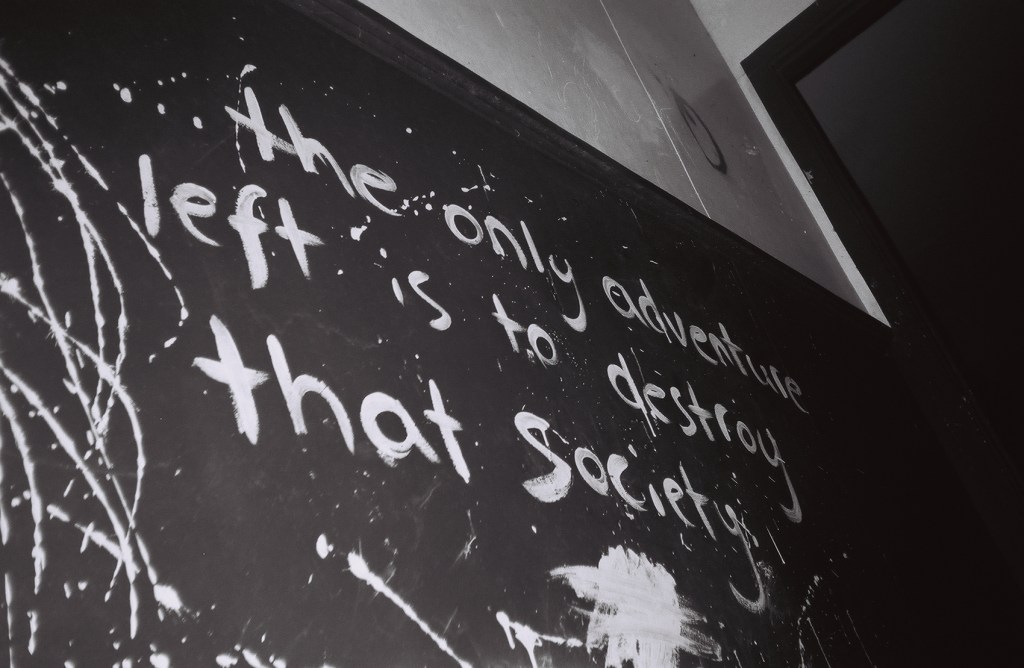 the only adventure
left is to destroy
that society